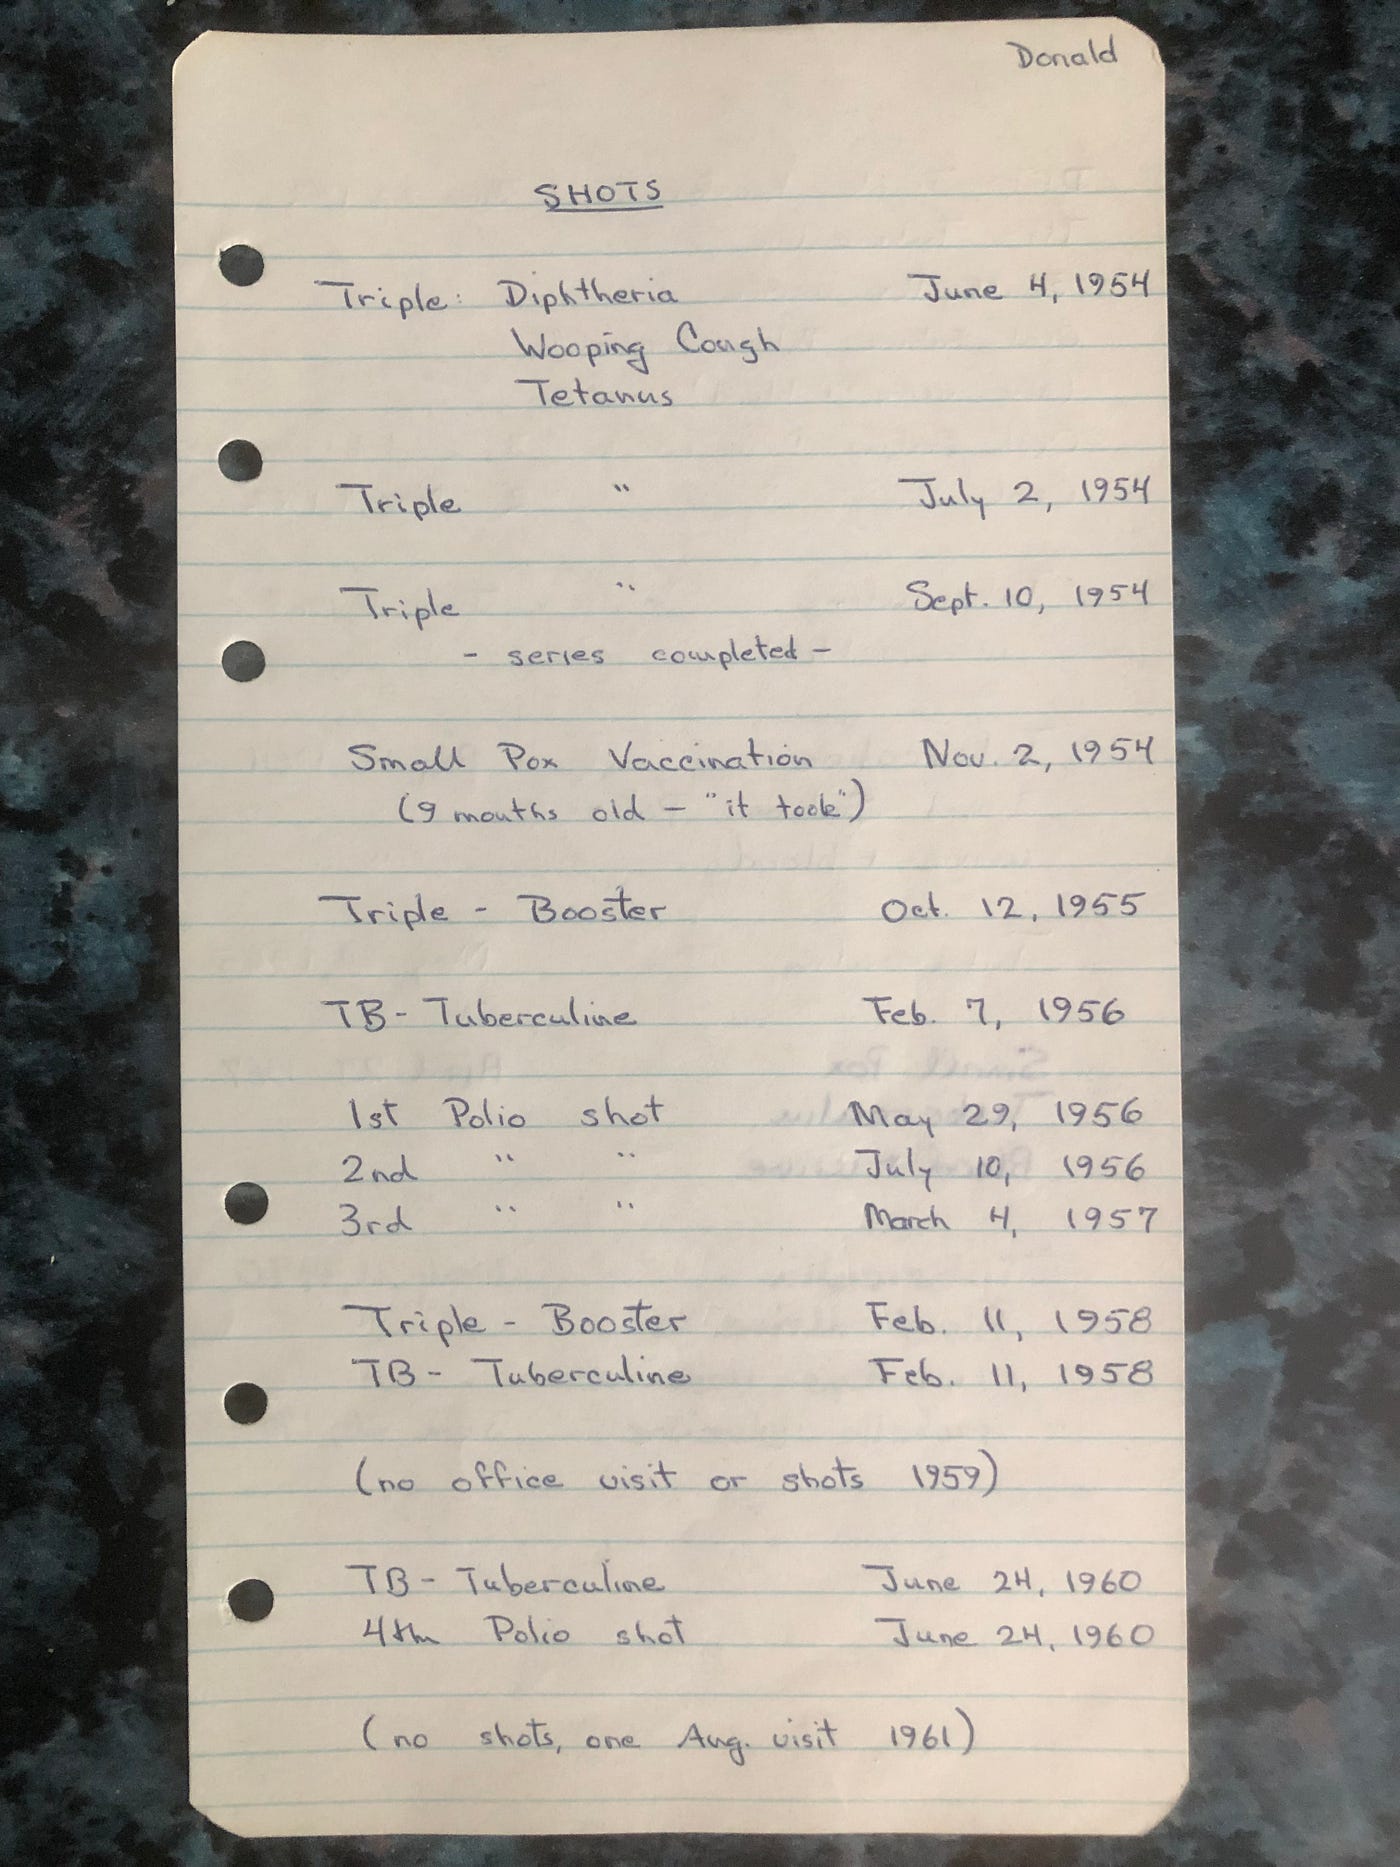 Donald
SHOTS
Triple: Diphtheria June 4, 1954
Wooping Cough
Tetanus
Triple " July 2, 1954
Triple " Sept. 10, 1954
- series completed -
Small Pox Vaccination Nov. 2, 1954
(9 mouths old - "it took")
Triple - Booster Oct. 12, 1955
TB - Tuberculine Feb. 7, 1956
1st Polio shot May 29, 1956
2nd " " July 10, 1956
3rd " " March 4, 1957
Triple - Booster Feb. 11, 1958
TB - Tuberculine Feb. 11, 1958
(no office visit or shots 1959)
TB - Tuberculine June 24, 1960
4th Polio shot June 24, 1960
(no shots, one Aug. visit 1961)